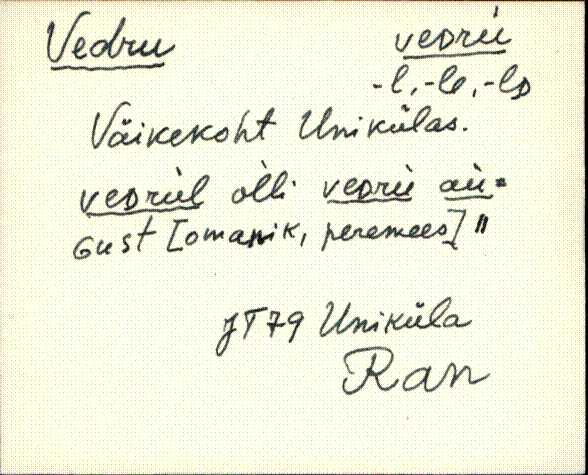 Vedru vedrü
-l, -le, -ls
Väikekoht Unikülas.
vedrül olli vedrü aü=
Gust [omanik, peremees]"
JT79 Uniküla
Ran